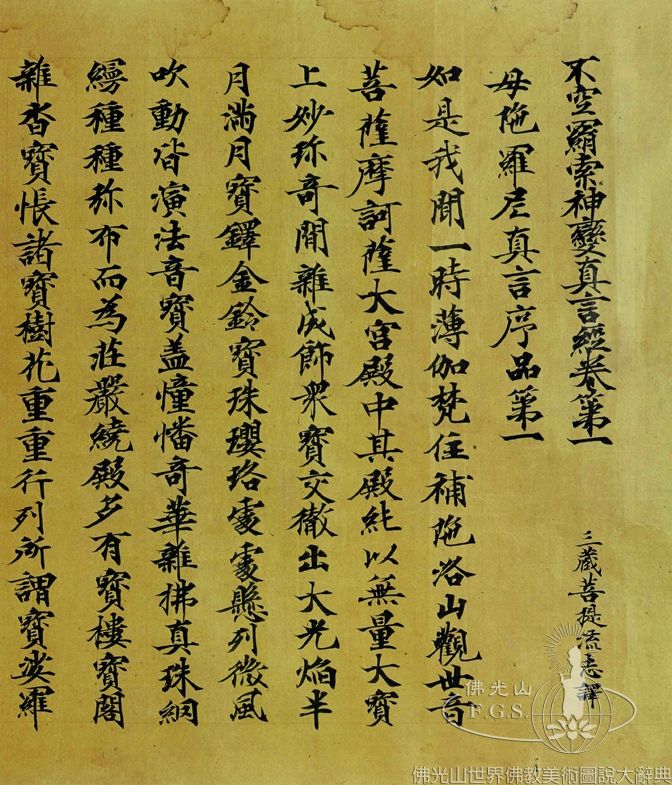 不空羂索神變真言經卷第一
三藏菩提流志譯
母陁羅尼真言序品第一
如是我聞一時薄伽梵住補陁洛山觀世音
菩薩摩訶薩大宮殿中其殿純以無量大寶
上妙珎奇間雜成飾衆寶交徹出大光焰半
月滿月寶鐸金鈴寶珠瓔珞處處懸列微風
吹動皆演法音寶盖幢幡奇華雜拂真珠網
縵種種弥布而為莊嚴繞殿多有寶樓寶閣
雜沓寶帳諸寶樹花重重行列所謂寶娑羅
佛光山
F.G.S.
佛光山世界佛教美術圖說大辭典